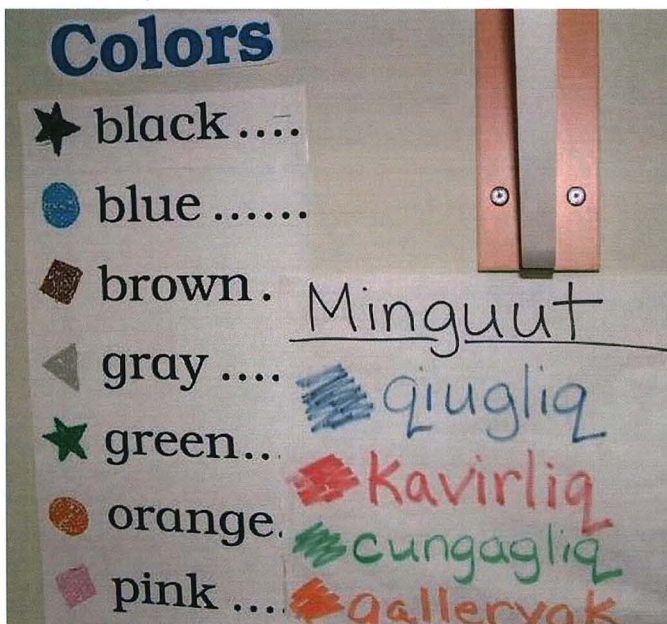 Colors
black ....
blue ......
brown .
gray ....
green...
orange.
pink ....
Minguut
qiugliq
Kavirliq
cungagliq
qallervak